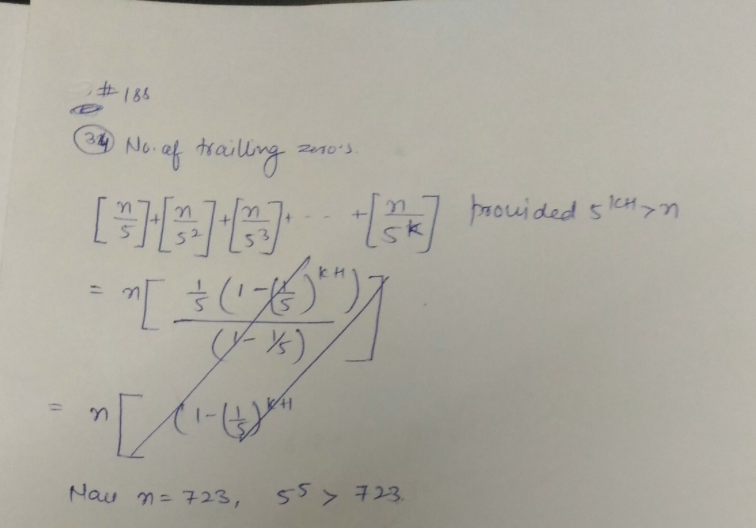 #188
34 No. of trailling zero's.
[n/5] + [n/5²] + [n/5³] + - - - + [n/5^k] provided 5^(k+1) > n
= n[ 1/5 (1 - (1/5)^(k+1)) / (1 - 1/5) ]
= n[ (1 - (1/5)^(k+1)
Now n = 723, 5⁵ > 723.